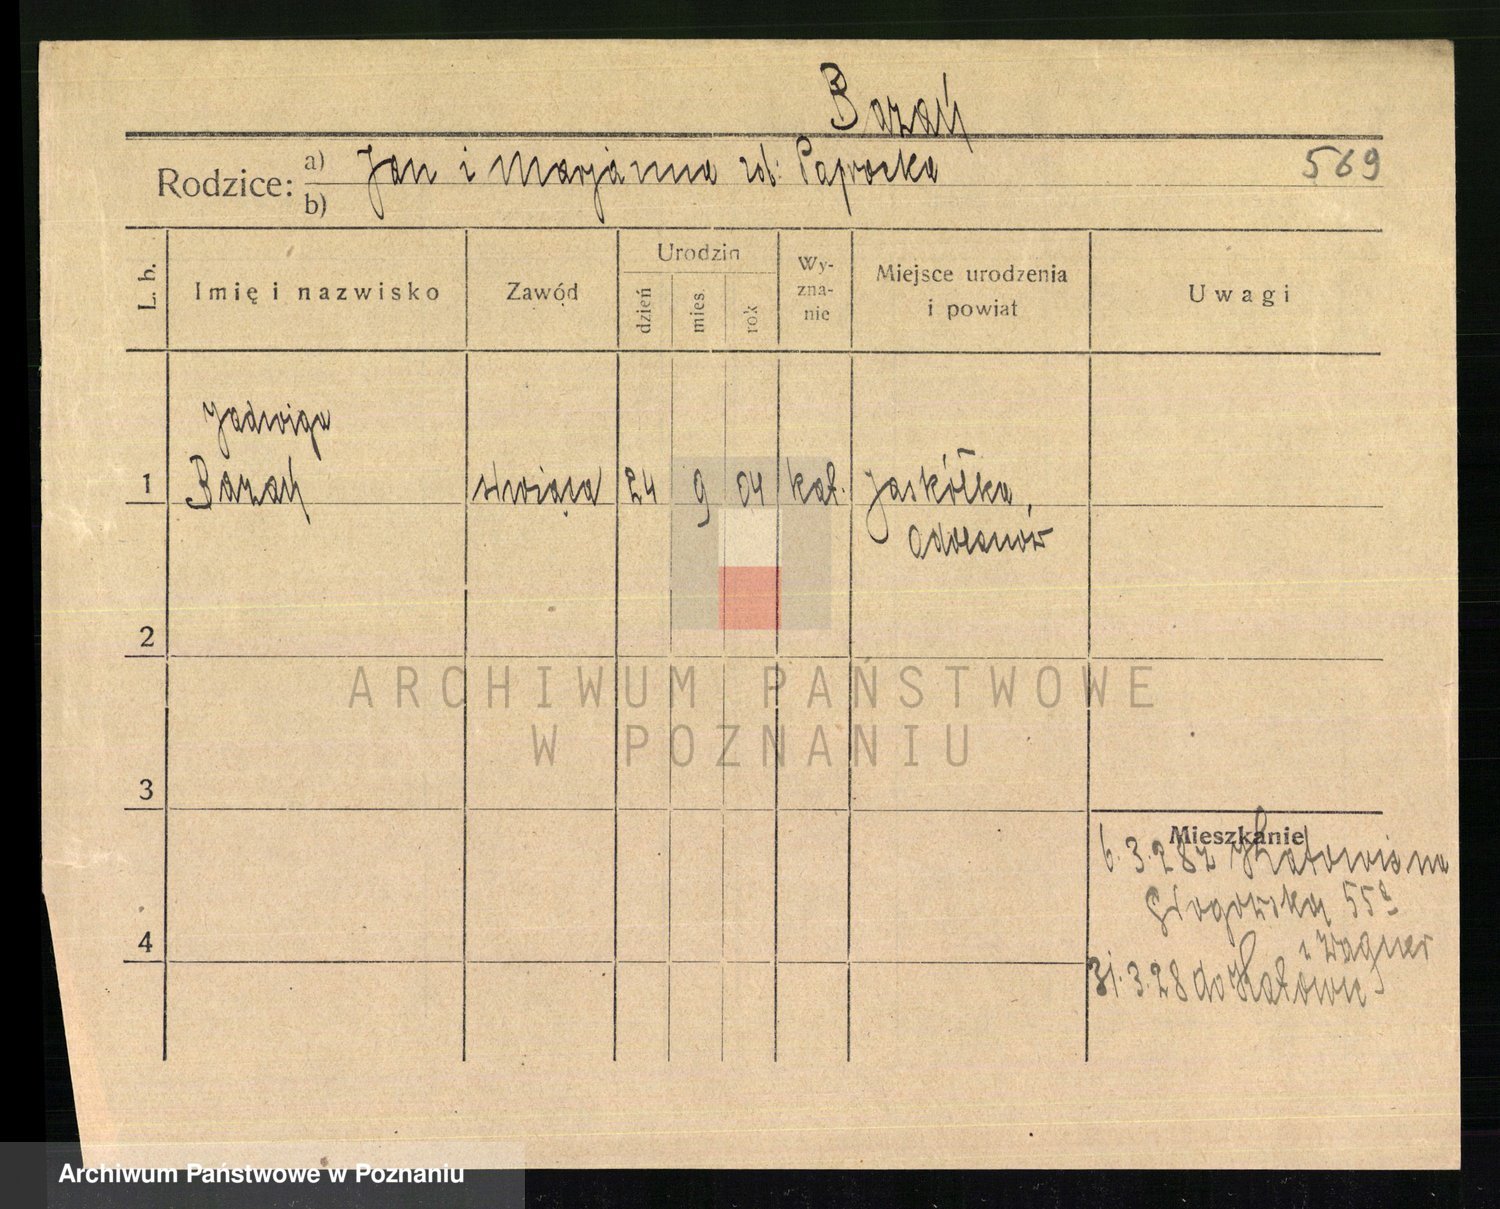 Bazań
Rodzice: a) Jan i Marjanna rod: Paprocka 569
b)
L. b. Imię i nazwisko Zawód Urodzin dzień mies. rok Wy-zna-nie Miejsce urodzenia i powiat Uwagi
Jadwiga
1 Bazań służąca 24 9 04 kat. Jaskółka,
Odolanów
2
ARCHIWUM PAŃSTWOWE
W POZNANIU
3
Mieszkanie
6.3.28 z Katowic na
Głogowska 55
i Wagner
4
31.3.28 do Katowic
Archiwum Państwowe w Poznaniu